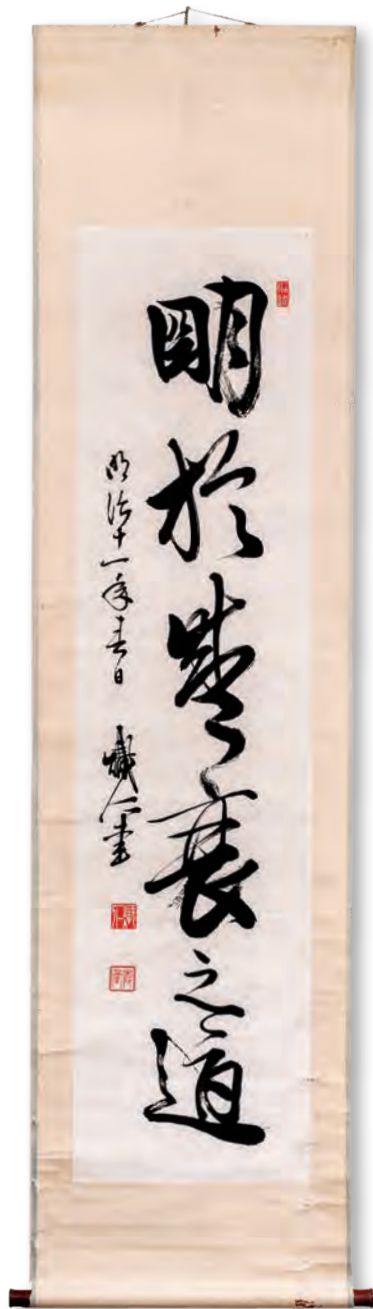 明於盛衰之道
明治十一年春日 熾仁書